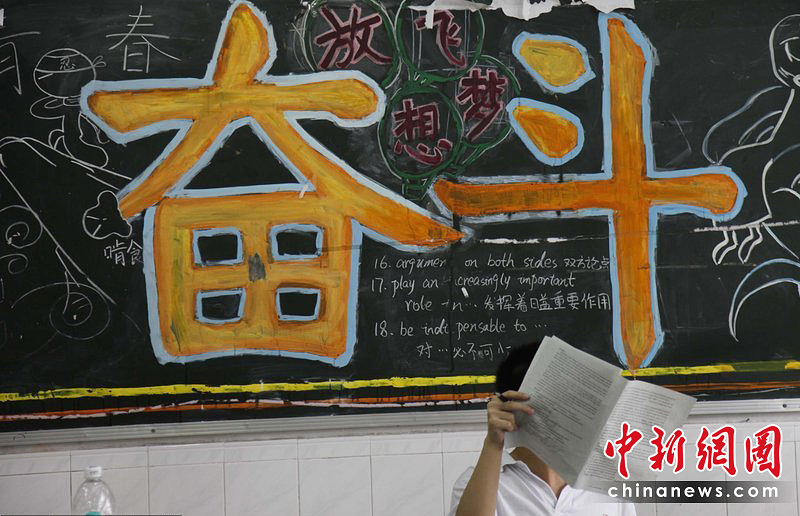 青春
忍
奋斗
放飞
梦想
啃食
16. argumen on both sides 双方论点
17. play an creasingly important
role in... 发挥着日益重要作用
18. be indi pensable to ...
对...必不可少
中新網圖
www.chinanews.com